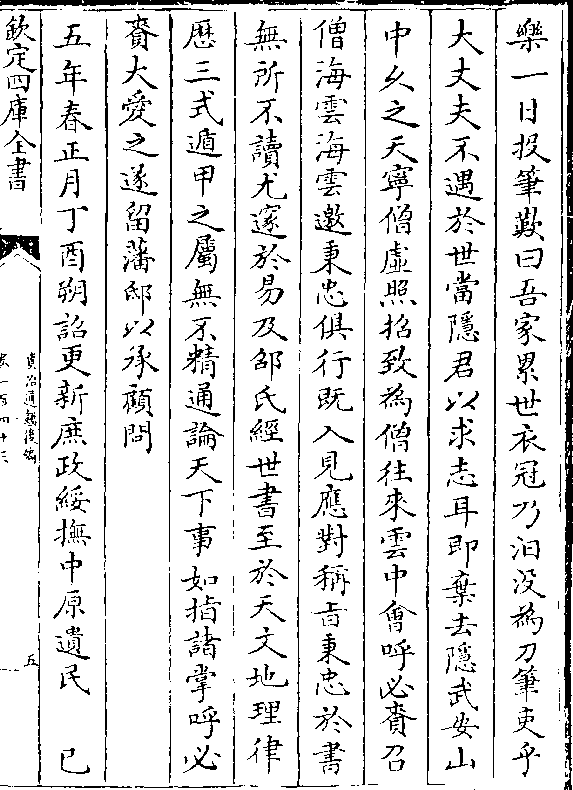 樂一日投筆歎曰吾家累世衣冠乃汩没為刀筆吏乎
大丈夫不遇於世當隱君以求志耳即棄去隱武安山
中久之天寧僧虛照招致為僧往來雲中會呼必賚召
僧海雲海雲邀秉忠俱行既入見應對稱旨秉忠於書
無所不讀尤邃於易及邵氏經世書至於天文地理律
歴三式遁甲之屬無不精通論天下事如指諸掌呼必
賚大愛之遂留藩邸以承顧問
五年春正月丁酉朔詔更新庶政綏撫中原遺民　已
欽定四庫全書
資治通鑑後編
卷一百四十三
五